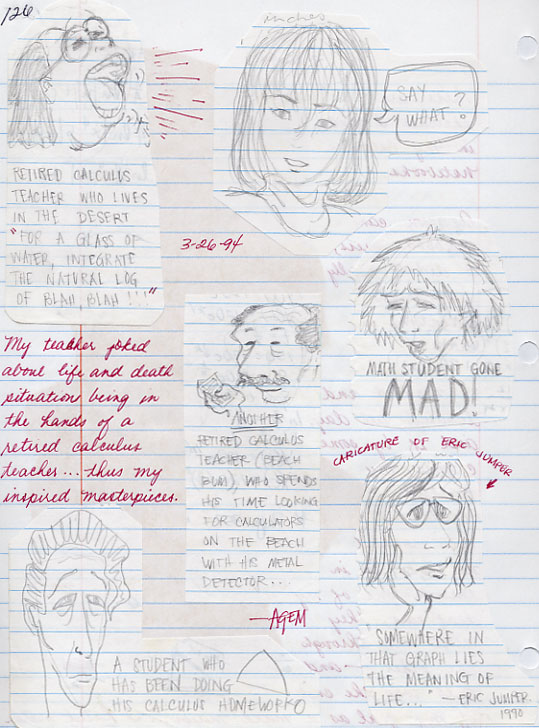 126
inches
SAY
WHAT?
RETIRED CALCULUS
TEACHER WHO LIVES
IN THE DESERT
"FOR A GLASS OF
WATER, INTEGRATE
THE NATURAL LOG
OF BLAH, BLAH!!!"
3-26-94
My teacher joked
about life and death
situation being in
the hands of a
retired calculus
teacher... thus my
inspired masterpieces.
MATH STUDENT GONE
MAD!
"ANOTHER
RETIRED CALCULUS
TEACHER (BEACH
BUM) WHO SPENDS
HIS TIME LOOKING
FOR CALCULATORS
ON THE BEACH
WITH HIS METAL
DETECTOR...
—AGEM
CARICATURE OF ERIC JUMPER
"SOMEWHERE IN
THAT GRAPH LIES
THE MEANING OF
LIFE..." —ERIC JUMPER.
1990
A STUDENT WHO
HAS BEEN DOING
HIS CALCULUS HOMEWORK